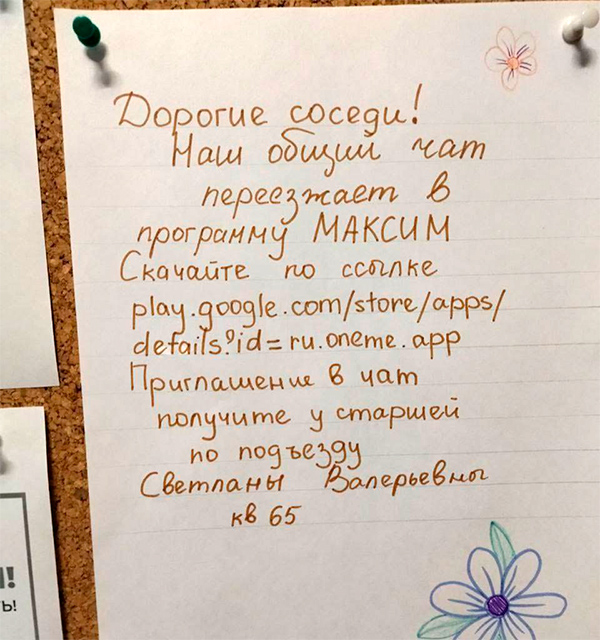 Дорогие соседи!
Наш общий чат
переезжает в
программу МАКСИМ
Скачайте по ссылке
play.google.com/store/apps/
details?id=ru.oneme.app
Приглашение в чат
получите у старшей
по подъезду
Светланы Валерьевны
кв 65
!
Ь!